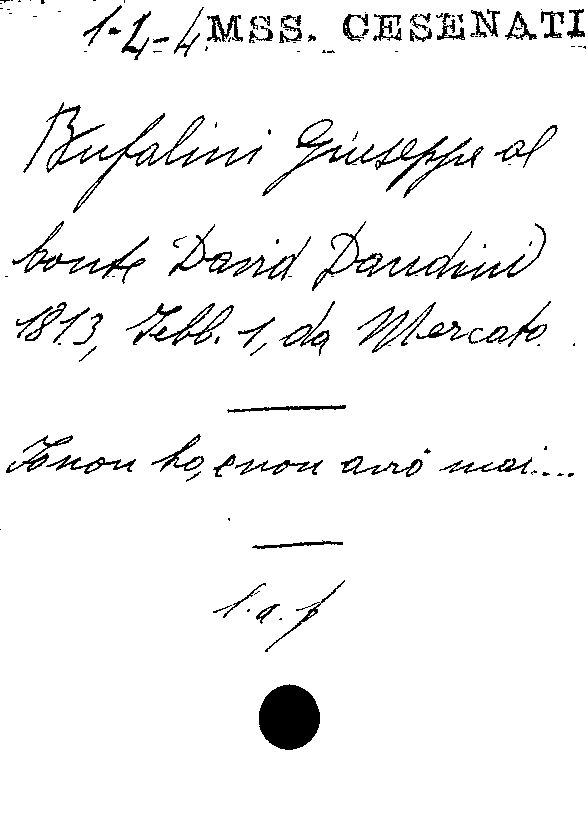 1-L-4 MSS. CESENATI
Bufalini Giuseppe al
Conte David Dandini
1813, Febb. 1, da Mercato.
Io non ho, e non avrò mai....
l.a.f